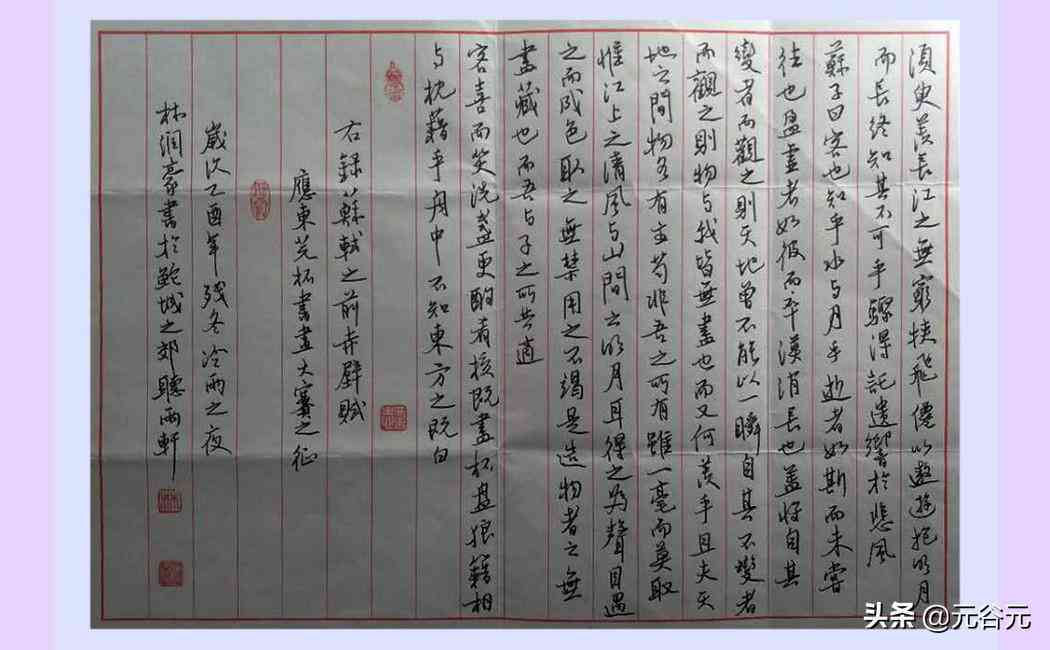 須臾羡長江之無窮挾飛僊以遨遊抱明月
而長終知其不可乎驟得託遺響於悲風
蘇子曰客也知乎水与月乎逝者如斯而未嘗
往也盈虚者如彼而卒漠消長也蓋将自其
變者而觀之則天地曾不能以一瞬自其不變者
而觀之則物与我皆無盡也而又何羡乎且夫天
地之間物各有主苟非吾之所有雖一毫而莫取
惟江上之清風与山間之明月耳得之為聲目遇
之而成色取之無禁用之不竭是造物者之無
盡藏也而吾与子之所共適
客喜而笑洗盏更酌肴核既盡杯盘狼籍相
与枕藉乎舟中不知東方之既白
右録蘇軾之前赤壁賦
應東芫杯書畫大賽之征
歲次乙酉年残冬冷雨之夜
林润豪書於鮀城之郊聽雨軒
头条 @元谷元